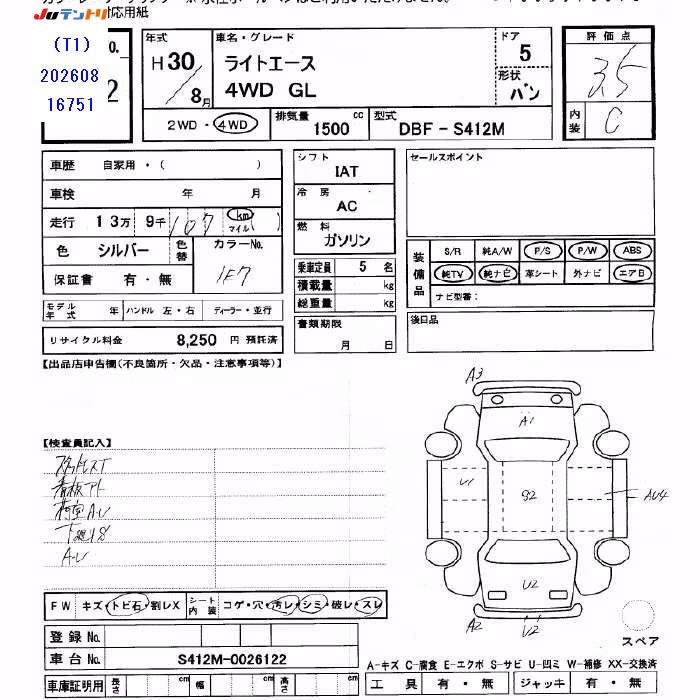 応用紙
Juテントリ
(T1)
202608
16751
No.
2
年式
H30/8月
車名・グレード
ライトエース
4WD GL
ドア
5
形状
バン
評価点
3.5
内装
C
2WD・4WD
排気量 1500 cc
型式 DBF-S412M
車歴 自家用・( )
車検 年 月
走行 13万 9千 107 km マイル( )
色 シルバー 色替 カラーNo. 1E7
保証書 有・無
モデル年式 年 ハンドル 左・右 ディーラー・並行
リサイクル料金 8,250 円 預託済
シフト
IAT
冷房
AC
燃料
ガソリン
乗車定員 5 名
積載量 kg
総重量 kg
書類期限
月 日
セールスポイント
装備品
S/R 純A/W P/S P/W ABS
純TV 純ナビ 革シート 外ナビ エアB
ナビ型番:
後日品
【出品店申告欄(不良箇所・欠品・注意事項等)】
【検査員記入】
スタッドレスT
看板アト
荷室A.U
下廻りS
A.U
A3
A1
U1
S2
AU4
U2
A2
U2
スペア
FW キズ・トビ石・割レX シート内装 コゲ・穴・汚レ・シミ・破レ・スレ
登録No.
車台No. S412M-0026122
車庫証明用 長さ cm 幅 cm 高さ cm
A-キズ C-腐食 E-エクボ S-サビ U-凹ミ W-補修 XX-交換済
工具 有・無 ジャッキ 有・無